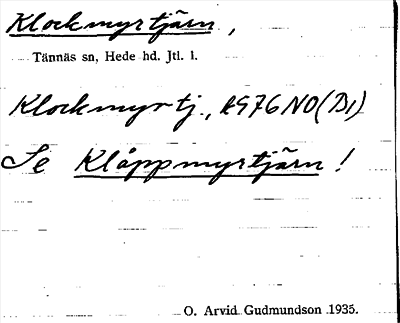 Klockmyrtjärn,
Tännäs sn, Hede hd. Jtl. l.
Klockmyrtj., 1976 NO (B1)
Se Klåppmyrtjärn!
O. Arvid Gudmundson 1935.